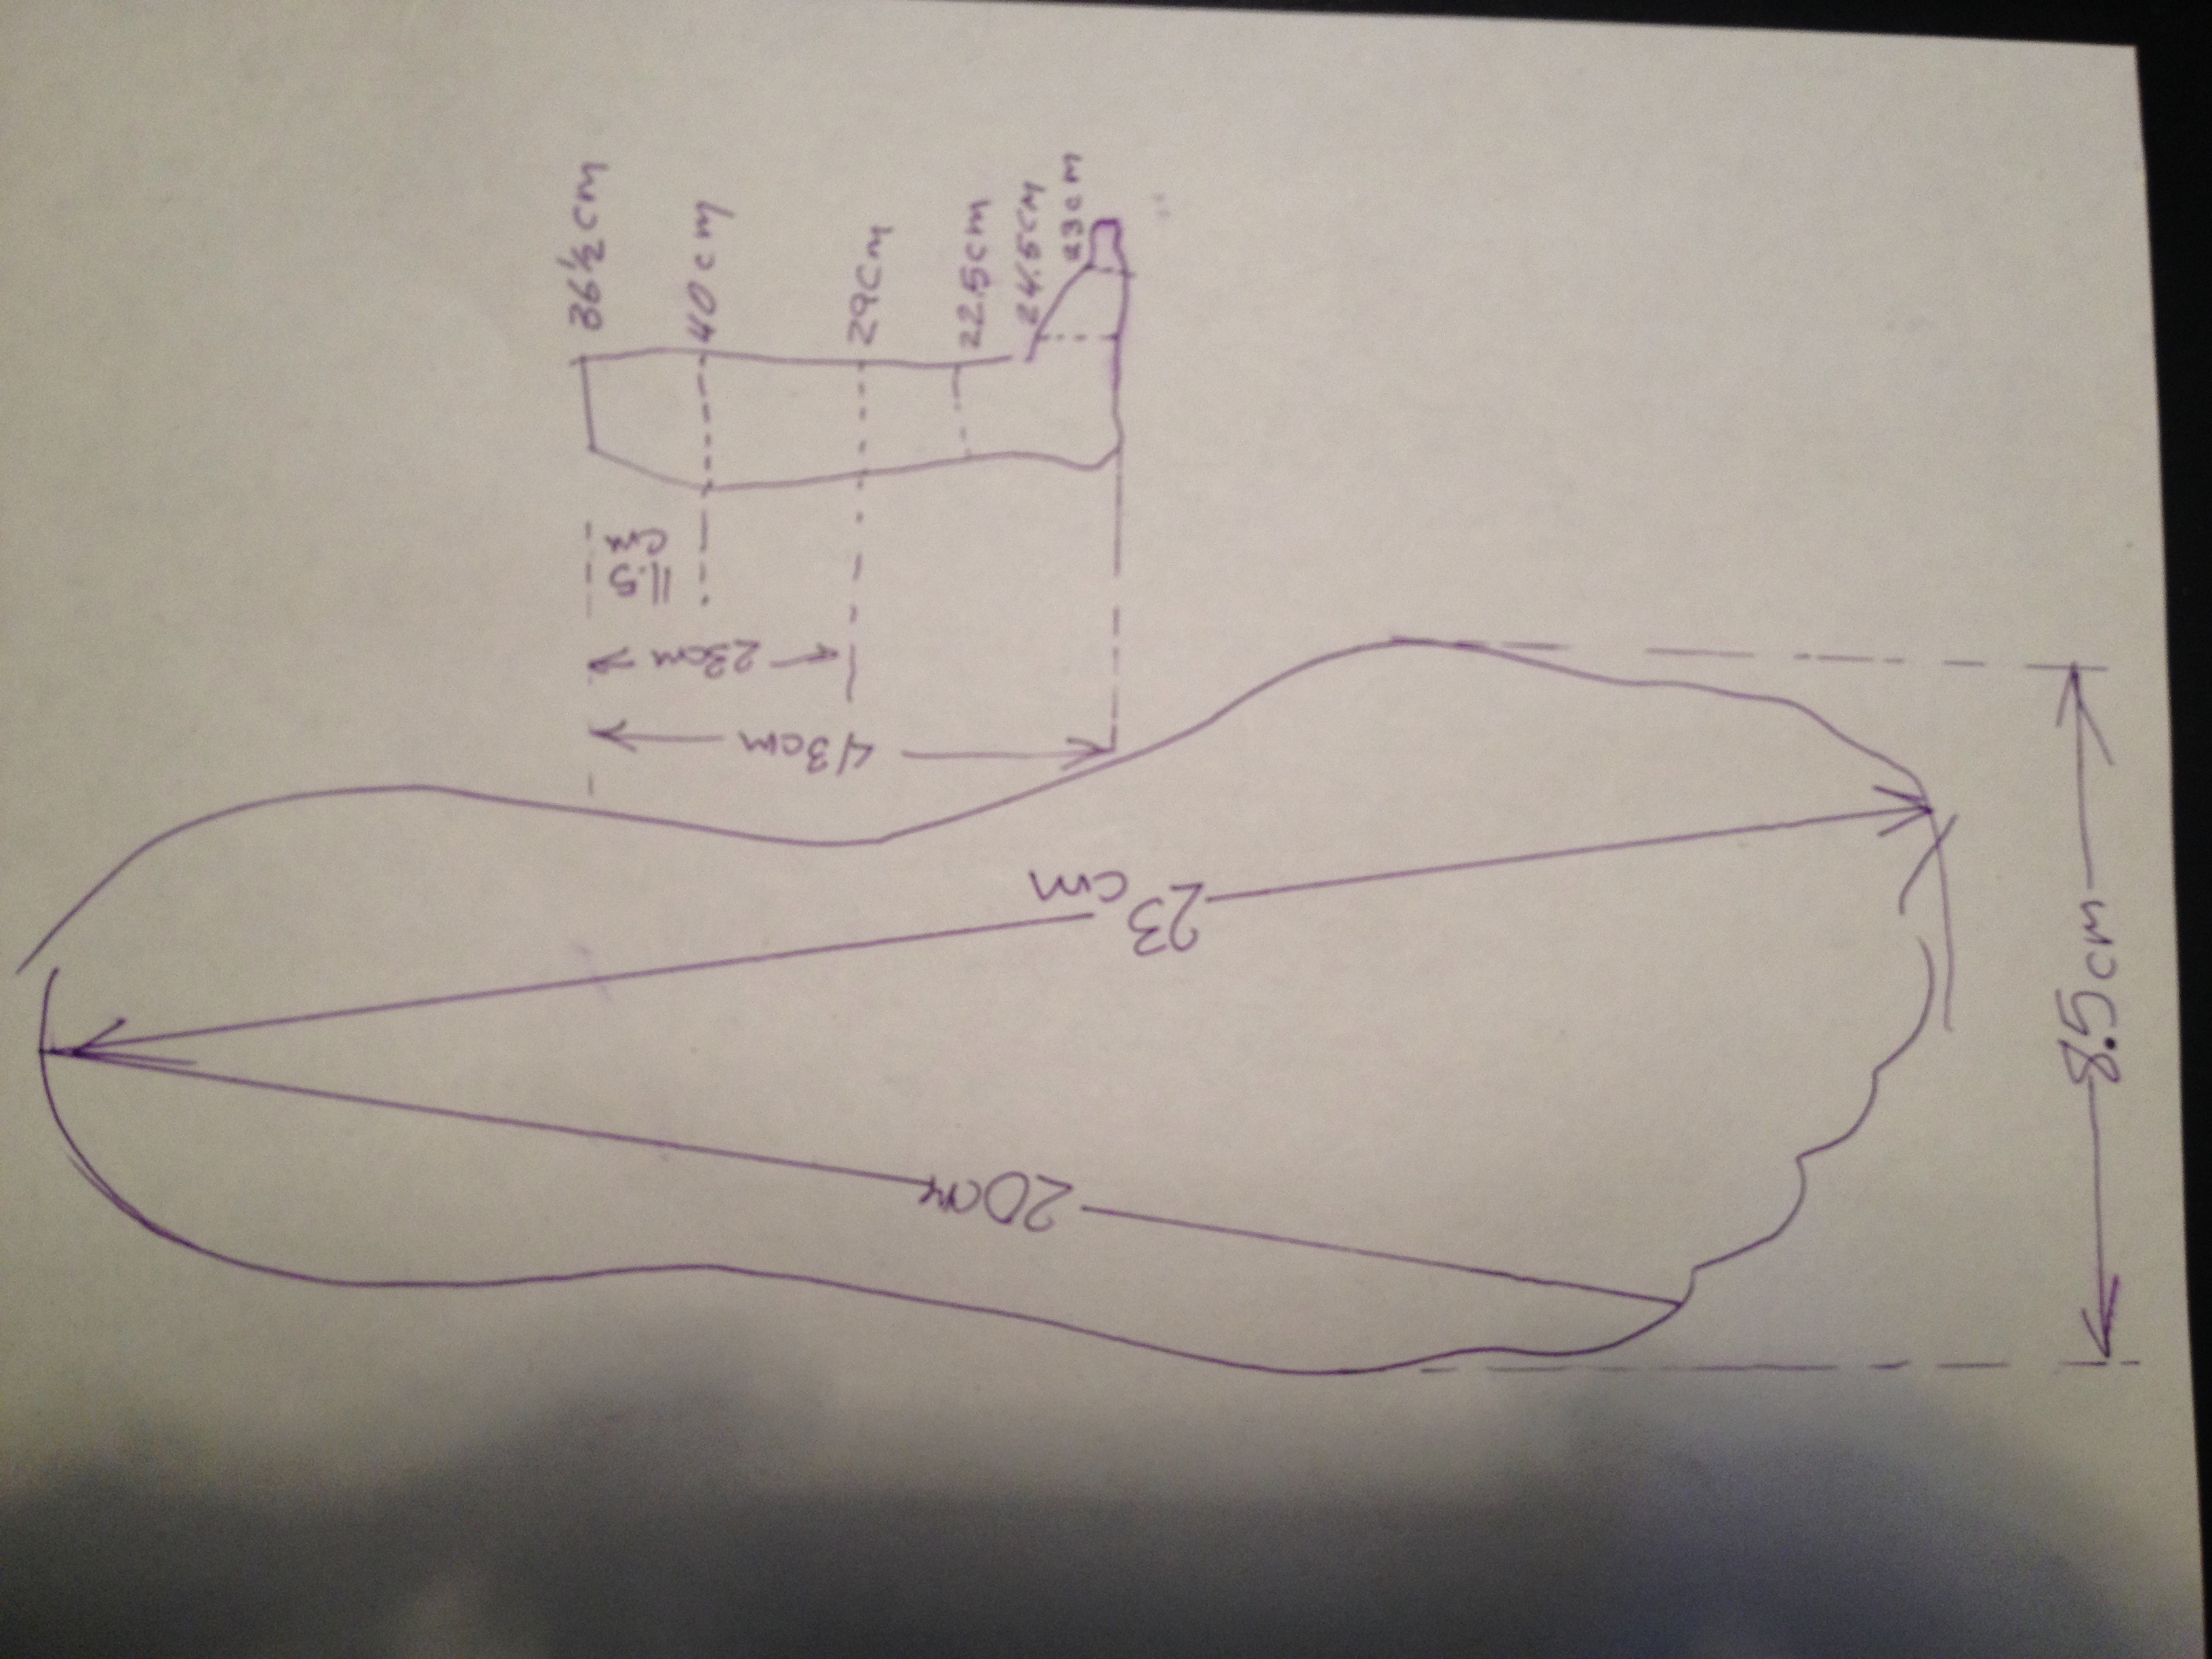 36½cm
40cm
29cm
22.5cm
24.5cm
23cm
11.5
cm
23cm
43cm
23
cm
20cm
8.5cm